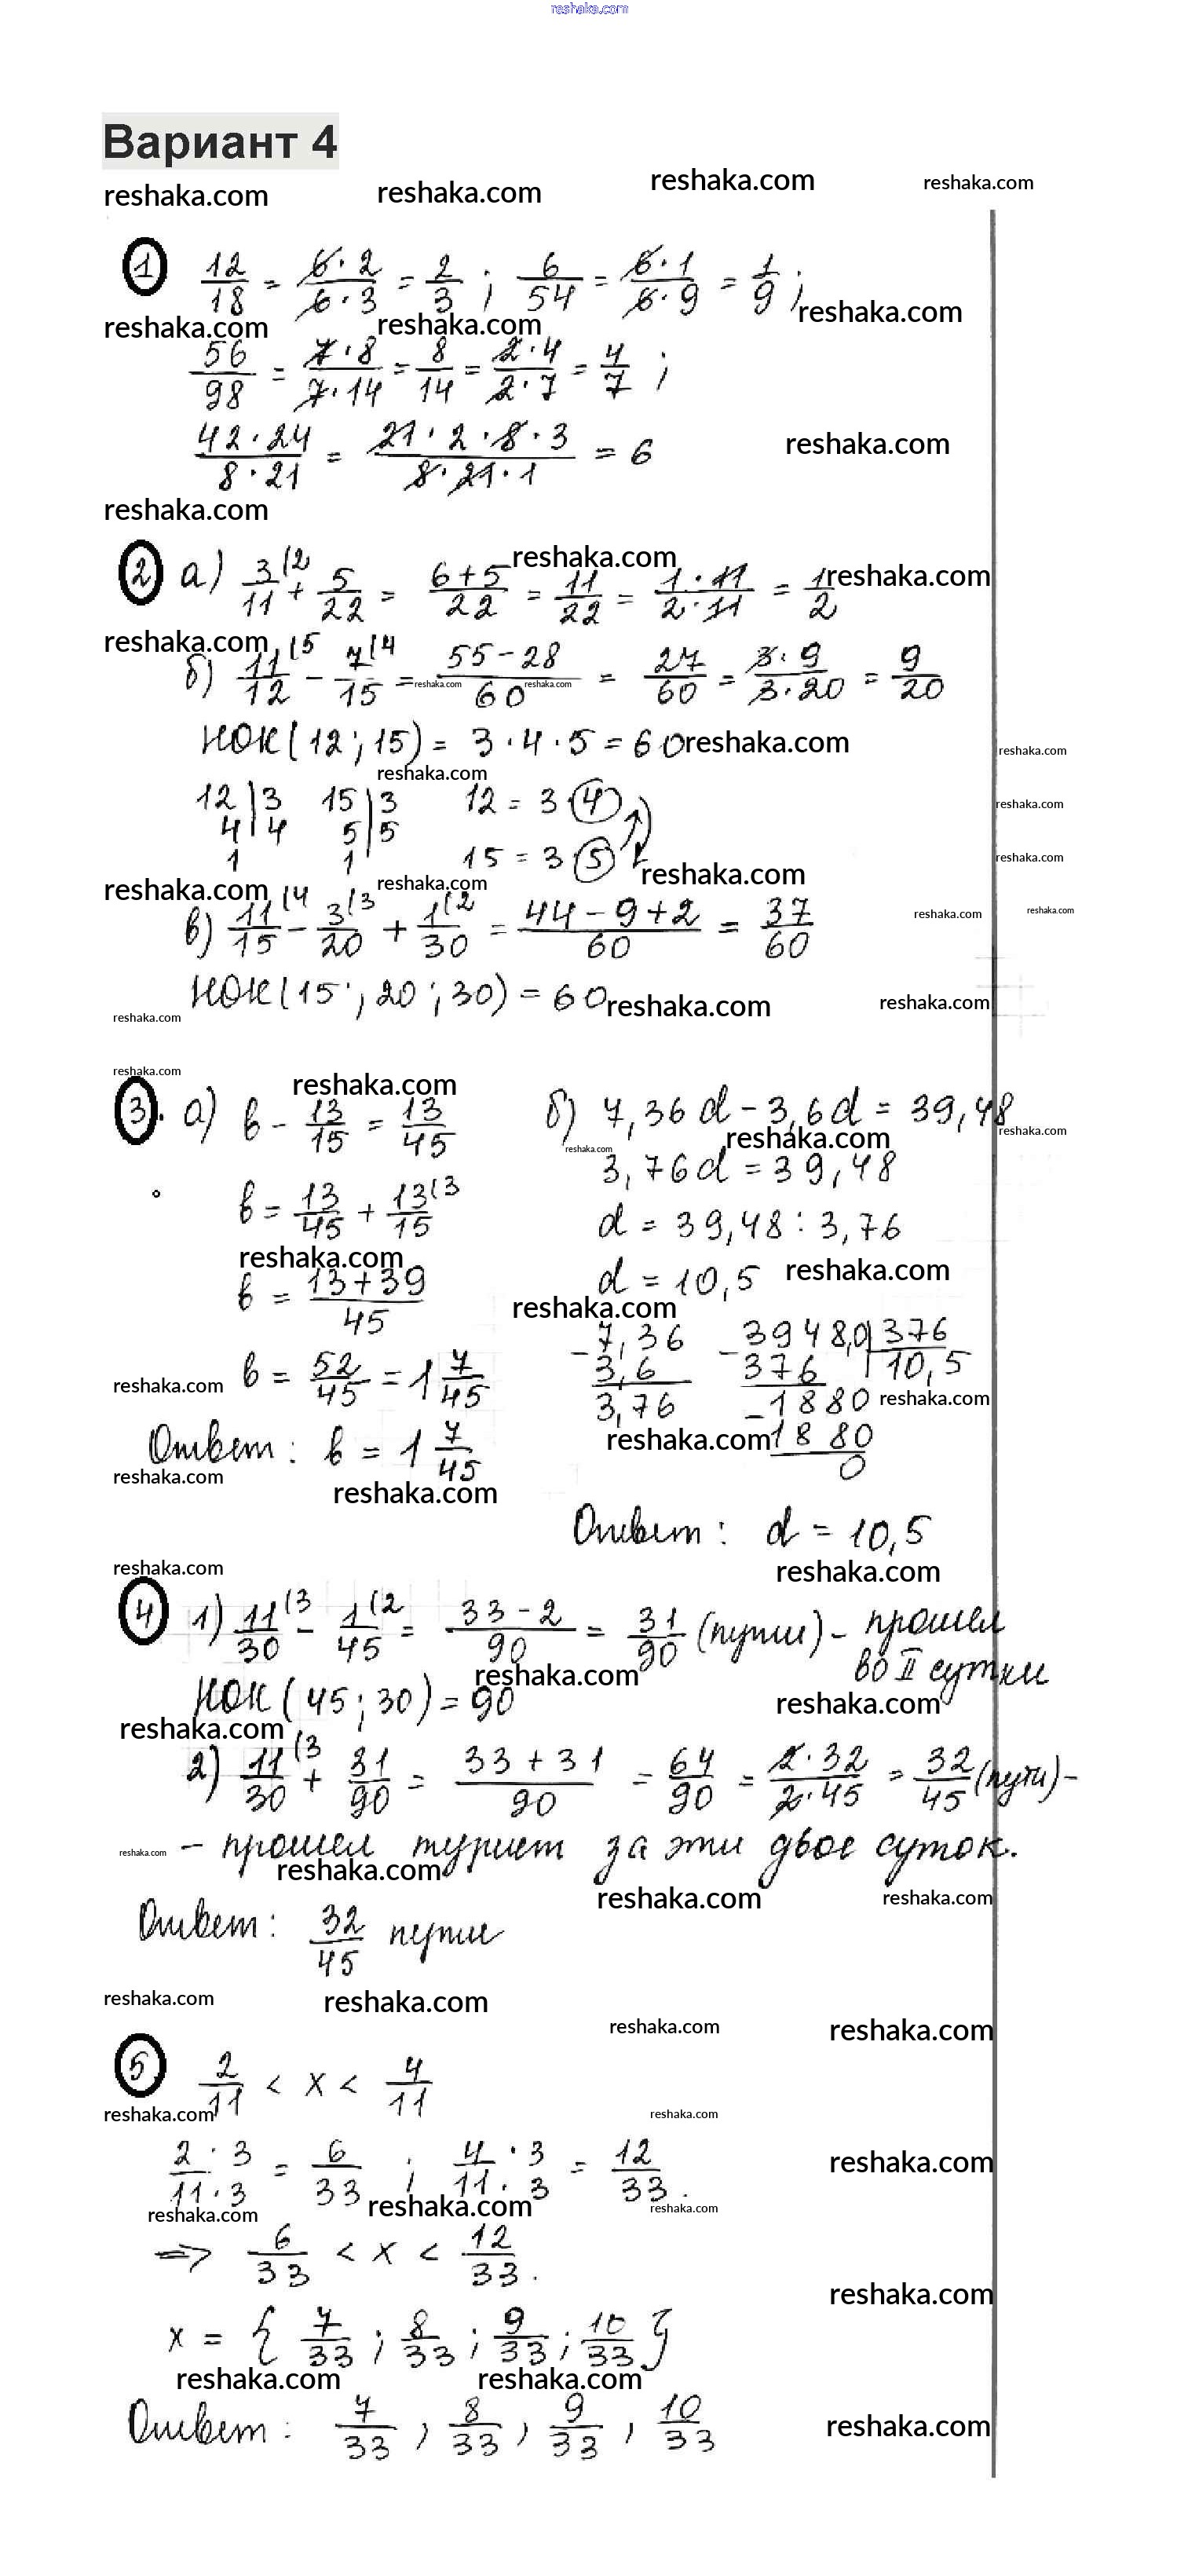 reshaka.com
Вариант 4
reshaka.com reshaka.com reshaka.com reshaka.com
1 12/18 = 6·2/6·3 = 2/3 ; 6/54 = 6·1/6·9 = 1/9 ;
reshaka.com reshaka.com reshaka.com
56/98 = 7·8/7·14 = 8/14 = 2·4/2·7 = 4/7 ;
42·24/8·21 = 21·2·8·3/8·21·1 = 6 reshaka.com
reshaka.com
2 а) 3/11 (2 + 5/22 = 6+5/22 = 11/22 = 1·11/2·11 = 1/2
reshaka.com reshaka.com
reshaka.com
б) 11/12 (5 - 7/15 (4 = 55-28/60 = 27/60 = 3·9/3·20 = 9/20
reshaka.com reshaka.com
НОК(12;15) = 3·4·5 = 60 reshaka.com reshaka.com
reshaka.com
12|3 15|3 12 = 3·4 reshaka.com
4|4 5|5
1 1 15 = 3·5 reshaka.com
reshaka.com reshaka.com reshaka.com
в) 11/15 (4 - 3/20 (3 + 1/30 (2 = 44-9+2/60 = 37/60
reshaka.com reshaka.com
НОК(15;20;30) = 60 reshaka.com reshaka.com
reshaka.com
reshaka.com reshaka.com
3. а) b - 13/15 = 13/45 б) 7,36d - 3,6d = 39,48
reshaka.com reshaka.com reshaka.com
3,76d = 39,48
b = 13/45 + 13/15 (3 d = 39,48 : 3,76
reshaka.com
b = 13+39/45 d = 10,5 reshaka.com
reshaka.com
b = 52/45 = 1 7/45 - 7,36 - 3948,0|376
reshaka.com 3,6 376 10,5
3,76 - 1880 reshaka.com
Ответ: b = 1 7/45 reshaka.com 1880
0
reshaka.com
reshaka.com
Ответ: d = 10,5
reshaka.com reshaka.com
4 1) 11/30 (3 - 1/45 (2 = 33-2/90 = 31/90 (пути) - прошел
во II сутки
reshaka.com
НОК(45;30) = 90 reshaka.com
reshaka.com
2) 11/30 (3 + 31/90 = 33+31/90 = 64/90 = 2·32/2·45 = 32/45 (пути) -
reshaka.com - прошел турист за эти двое суток.
reshaka.com
reshaka.com reshaka.com
Ответ: 32/45 пути
reshaka.com reshaka.com
reshaka.com reshaka.com
5 2/11 < x < 4/11
reshaka.com reshaka.com
2·3/11·3 = 6/33 ; 4·3/11·3 = 12/33. reshaka.com
reshaka.com reshaka.com reshaka.com
=> 6/33 < x < 12/33.
reshaka.com
x = { 7/33 ; 8/33 ; 9/33 ; 10/33 }
reshaka.com reshaka.com
Ответ: 7/33 , 8/33 , 9/33 , 10/33 reshaka.com